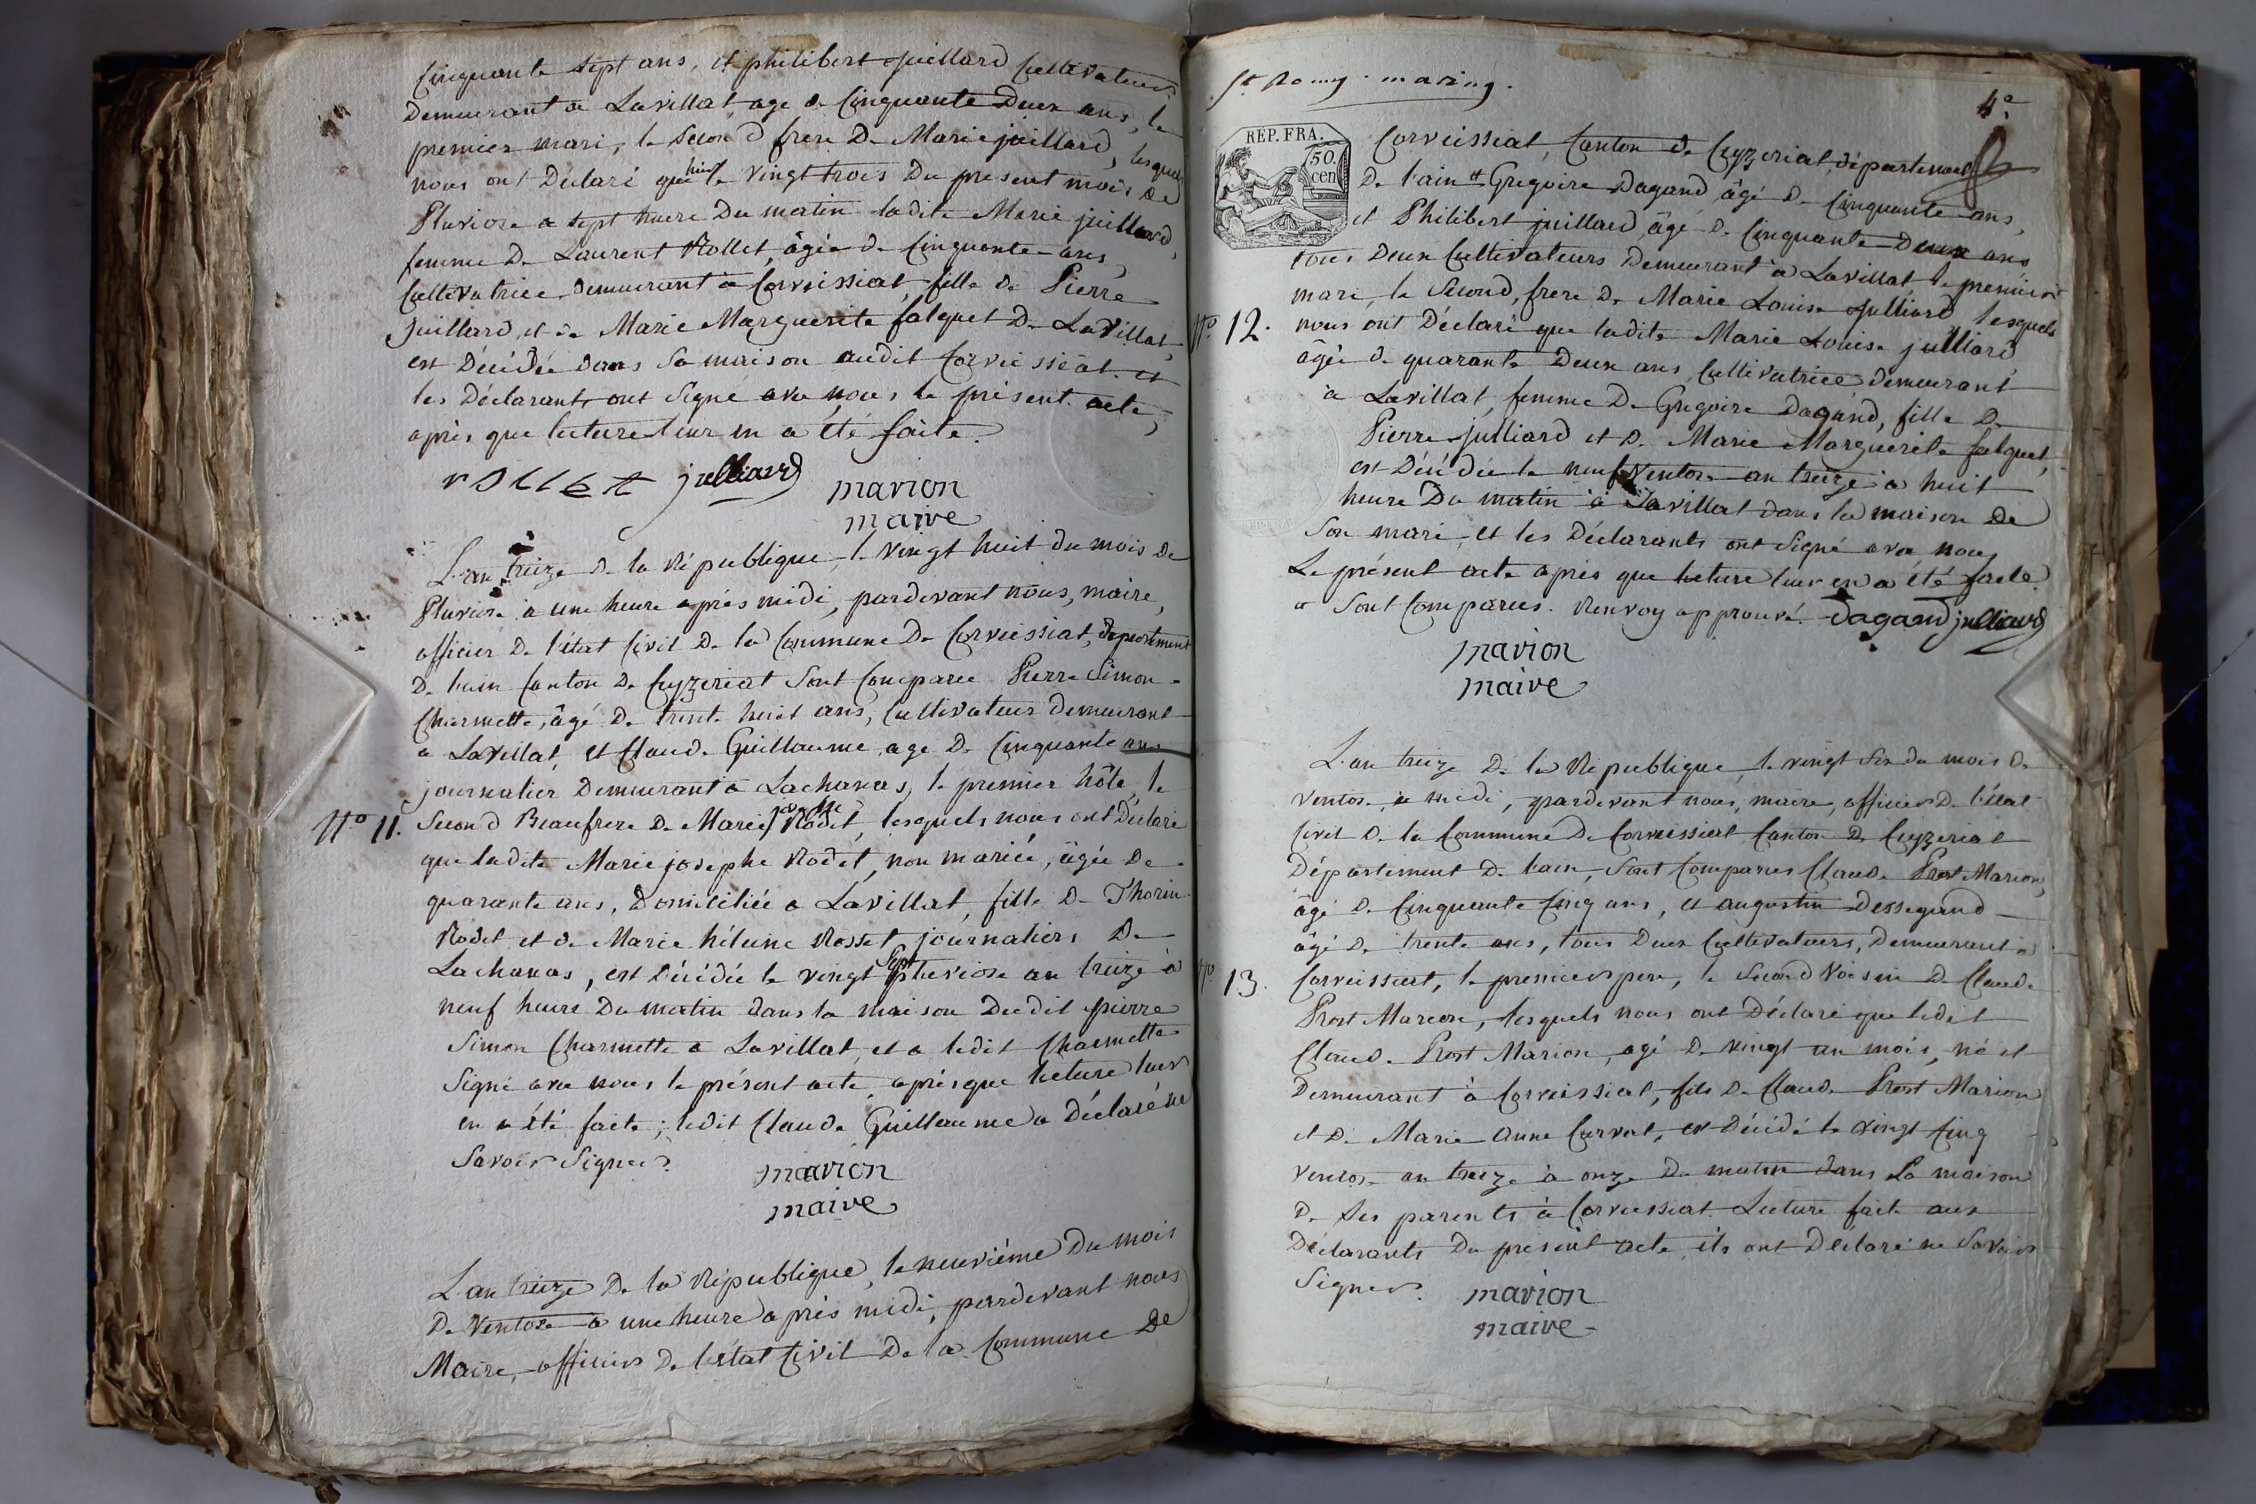 Cinquante sept ans, et philibert juillard Cultivateur
Demeurant a Lavillat, age de Cinquante Deux ans, le
premier mari, le Second frere De Marie juillard, lesquels
nous ont Déclaré que le vingt trois Du present mois de
Pluviose a sept heure Du matin ladite Marie juillard
femme De Laurent Rollet, âgée de Cinquante ans,
Cultivatrice demeurant a Corveissiat fille de Pierre
juillard, et de Marie Marguerite falquet De Lavillat,
est Décédée dans sa maison audit Corveissiat. et
les Déclarants ont Signé avec nous le présent acte,
après que lecture leur en a été faite.
rollet julliard marion
maire
L'an treize de la République, le vingt huit du mois de
Pluviose a une heure après midi, pardevant nous, maire,
officier De l'état Civil De la Commune De Corveissiat, département
De lain Canton De Ceyzeriat Sont Comparu Pierre Simon
Charmette, âgé De trente huit ans, Cultivateur demeurant
a Lavillat, et Claude Guillaume, age De Cinquante ans
journalier Demeurant a Lachanas, le premier hôte, le
N.o 11. Second Beaufrere De Marie josephe Rodet, lesquels nous ont Déclaré
que ladite Marie josephe Rodet, non mariée, âgée De
quarante ans, Domiciliée a Lavillat, fille De Thorin
Rodet et de Marie héleine Rosset journaliers De
Lachanas, est Décédée le vingt Sept pluviose an treize à
neuf heure Du matin dans la maison Dudit pierre
Simon Charmette a Lavillat, et a ledit Charmette
Signé avec nous le présent acte, après que lecture leur
en a été faite; ledit Claude Guillaume a Déclaré ne
Savoir Signer.
marion
maire
L'an treize De la République, le neuvième Du mois
De Ventose a une heure après midi, pardevant nous
Maire, officier De l'état Civil De la Commune De
4e
REP. FRA.
50.
cen
Corveissiat, Canton de Ceyzeriat, département
De l'ain # Gregoire Dagand, âgé De Cinquante ans,
et Philibert juillard, âgé De Cinquante Deux ans
tous Deux Cultivateurs Demeurant a Lavillat, le premier
mari, le Second, frere De Marie Louise Julliard lesquels
N.o 12. nous ont Déclaré que ladite Marie Louise julliard
âgée de quarante Deux ans, Cultivatrice demeurant
a Lavillat, femme De Gregoire Dagand, fille De
Pierre julliard et De Marie Marguerite falquet,
est Décédée le neuf Ventose an treize a huit
heure Du matin a Lavillat dans la maison De
Son mari, et les Déclarants ont Signé avec nous
Le présent acte après que lecture leur en a été faite.
# Sont Comparus. Renvoy approuvé. Dagand julliard
marion
maire
L'an treize De la République, le vingt Six du mois De
Ventose, a midi, pardevant nous, maire, officier De l'état
Civil De la Commune De Corveissiat Canton De Ceyzeriat
Département De lain, Sont Comparus Claude Prost Marion,
âgé De Cinquante Cinq ans, et augustin Dessegand
âgé De trente ans, tous Deux Cultivateurs, Demeurant a
N.o 13. Corveissiat, le premier pere, le Second Voisin De Claude
Prost Marion, lesquels nous ont Déclaré que ledit
Claude Prost Marion, agé De vingt un mois, né et
Demeurant à Corveissiat, fils De Claude Prost Marion
et De Marie Anne Curvat, est Décédé le vingt Cinq
Ventose an treize à onze Du matin dans La maison
De Ses parents à Corveissiat. Lecture faite aux
Déclarants Du présent acte, ils ont Déclaré ne Savoir
Signer. marion
maire